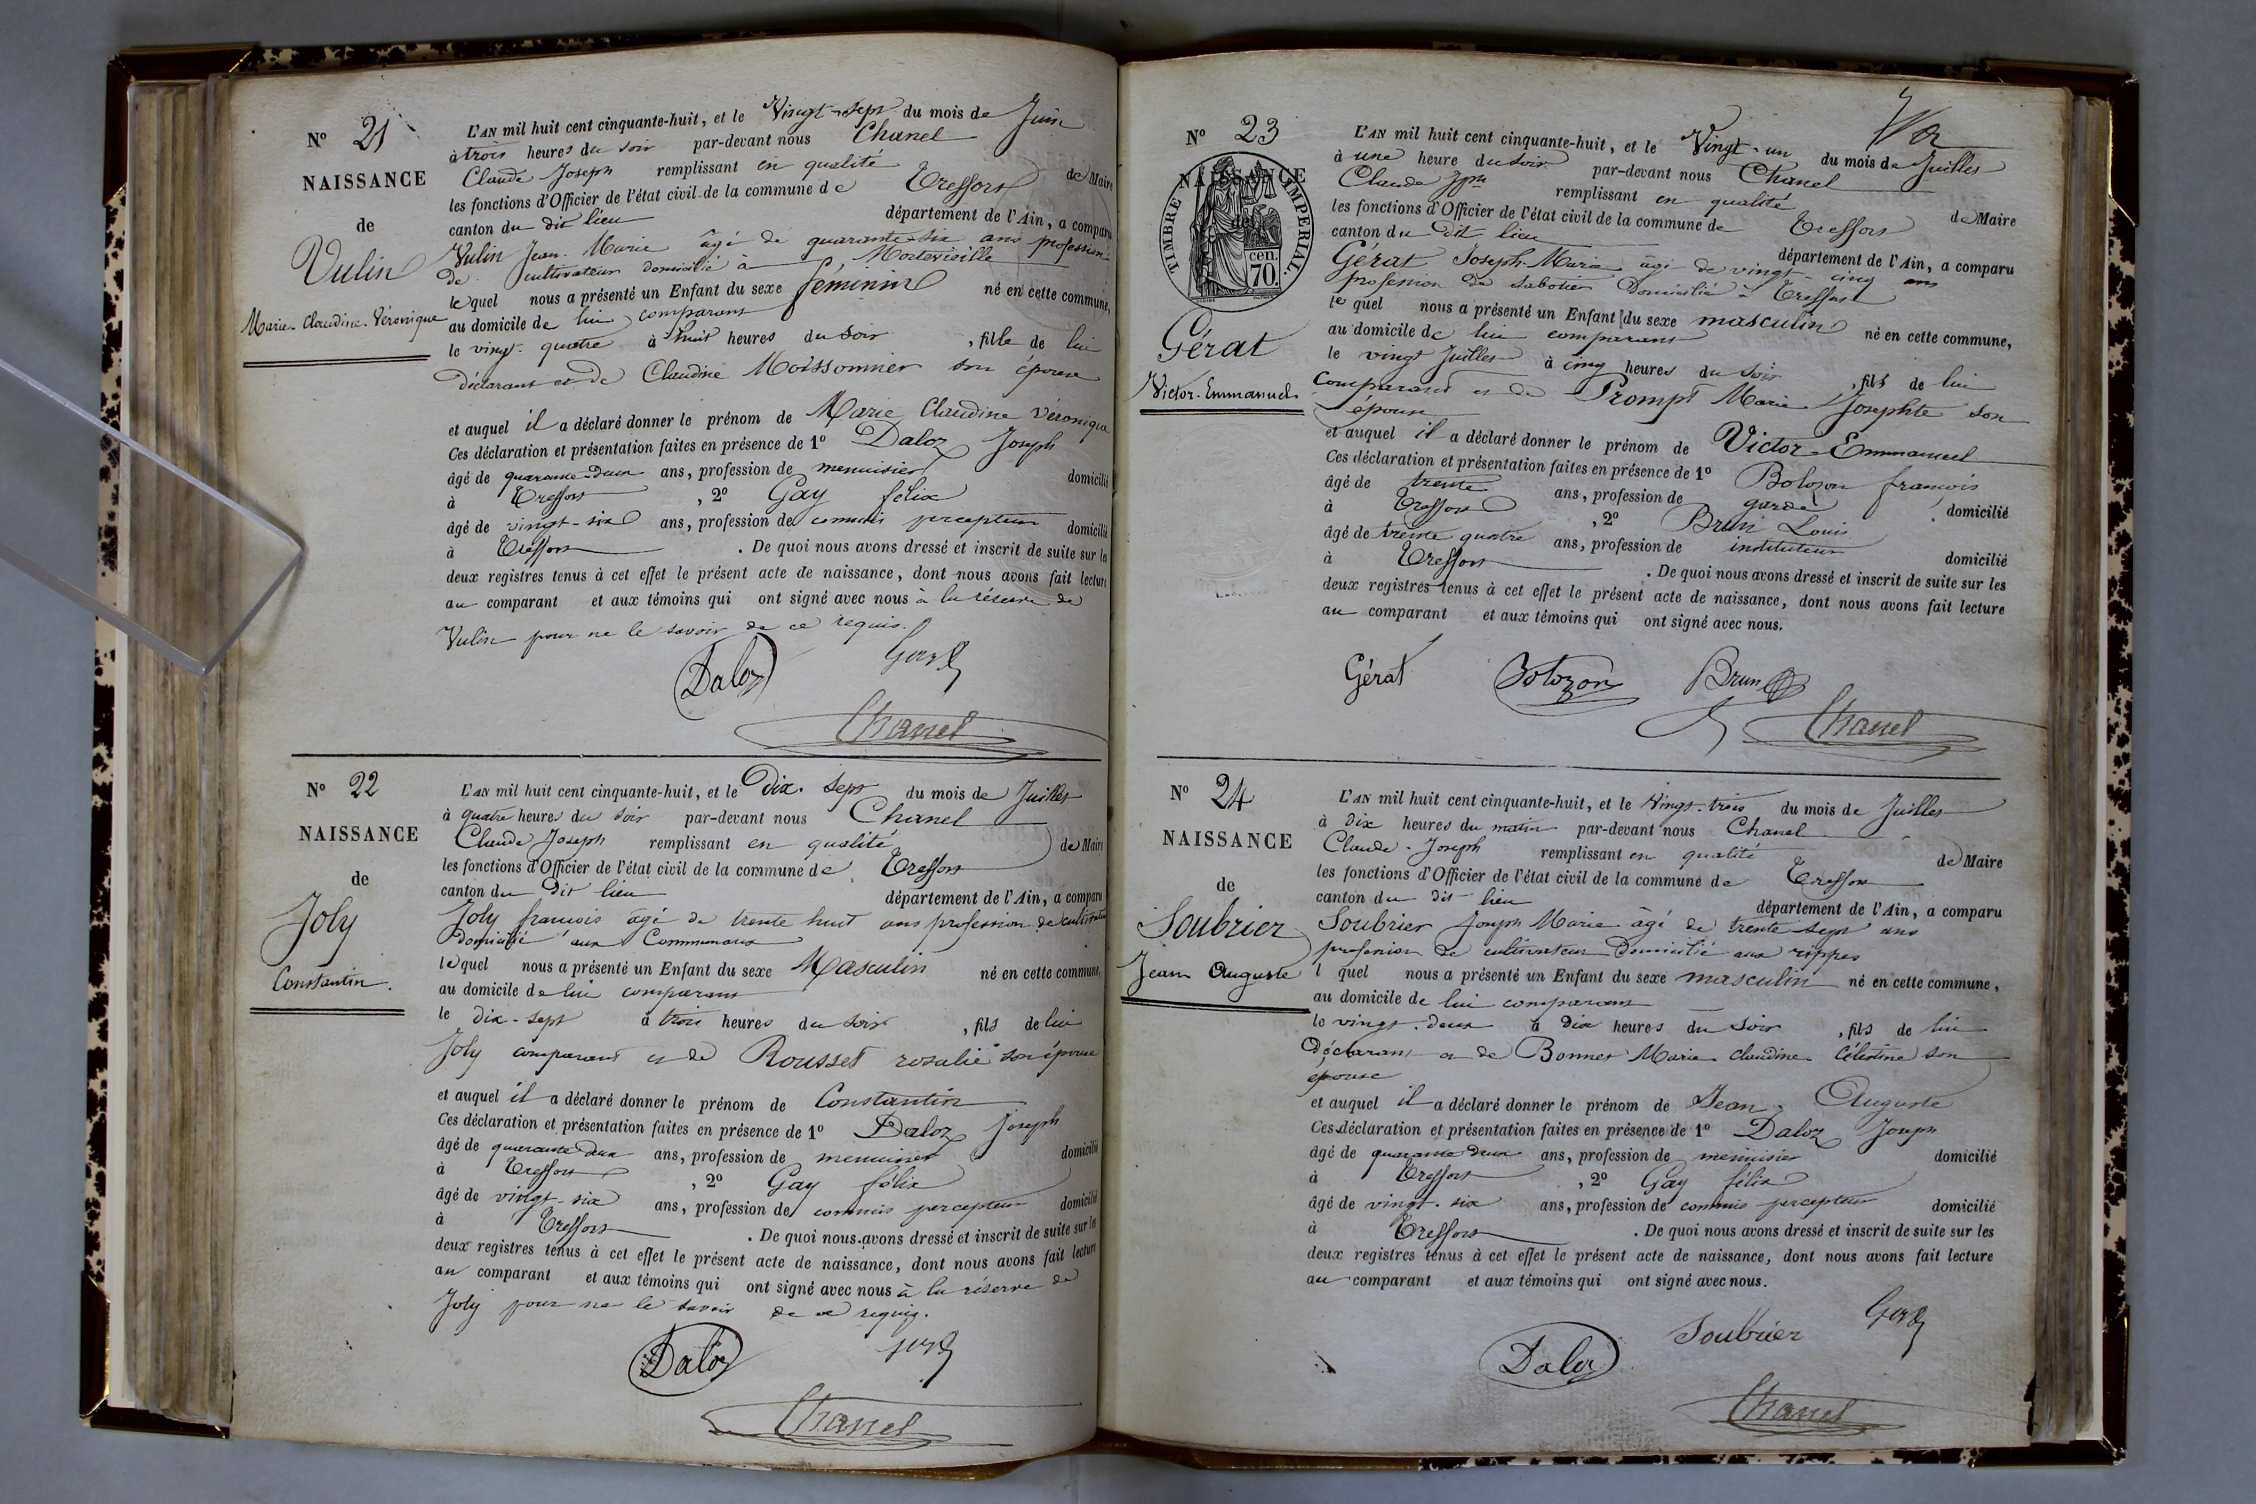 N° 21
NAISSANCE
de
Vulin
Marie-Claudine-Véronique
L'AN mil huit cent cinquante-huit, et le Vingt-sept du mois de Juin
à trois heures du soir par-devant nous Chanel
Claude Joseph remplissant en qualité de Maire
les fonctions d'Officier de l'état civil de la commune de Treffort
canton du dit lieu département de l'Ain, a comparu
Vulin Jean Marie âgé de quarante-six ans profession
de cultivateur domicilié à
lequel nous a présenté un Enfant du sexe féminin né en cette commune,
au domicile de lui comparant
le vingt-quatre à huit heures du soir, fille de lui
déclarant et de Claudine Moissonnier son épouse
et auquel il a déclaré donner le prénom de Marie Claudine Véronique
Ces déclaration et présentation faites en présence de 1° Daloz Joseph
âgé de quarante-deux ans, profession de menuisier domicilié
à Treffort, 2° Gay félix
âgé de vingt-six ans, profession de commis percepteur domicilié
à Treffort. De quoi nous avons dressé et inscrit de suite sur les
deux registres tenus à cet effet le présent acte de naissance, dont nous avons fait lecture
au comparant et aux témoins qui ont signé avec nous à la réserve de
Vulin pour ne le savoir de ce requis.
Daloz Gay
Chanel
N° 22
NAISSANCE
de
Joly
Constantin.
L'AN mil huit cent cinquante-huit, et le Dix-sept du mois de Juillet
à quatre heures du soir par-devant nous Chanel
Claude Joseph remplissant en qualité de Maire
les fonctions d'Officier de l'état civil de la commune de Treffort
canton du Dit lieu département de l'Ain, a comparu
Joly francois âgé de trente huit ans profession de cultivateur
Domicilié aux Communaux
lequel nous a présenté un Enfant du sexe Masculin né en cette commune,
au domicile de lui comparant
le dix-sept à trois heures du soir, fils de lui
Joly comparant et de Rousset rosalie son épouse
et auquel il a déclaré donner le prénom de Constantin
Ces déclaration et présentation faites en présence de 1° Daloz Joseph
âgé de quarante deux ans, profession de menuisier domicilié
à Treffort, 2° Gay félix
âgé de vingt-six ans, profession de commis percepteur domicilié
à Treffort. De quoi nous avons dressé et inscrit de suite sur les
deux registres tenus à cet effet le présent acte de naissance, dont nous avons fait lecture
au comparant et aux témoins qui ont signé avec nous à la réserve de
Joly pour ne le savoir de ce requis.
Daloz Gay
Chanel
N° 23
NAISSANCE
de
TIMBRE IMPERIAL.
70. cen.
Gérat
Victor-Emmanuel
L'AN mil huit cent cinquante-huit, et le Vingt-un du mois de Juillet
à une heure du soir par-devant nous Chanel
Claude Jph remplissant en qualité de Maire
les fonctions d'Officier de l'état civil de la commune de Treffort
canton du dit lieu département de l'Ain, a comparu
Gérat Joseph-Marie âgé de vingt-cinq ans
profession de sabotier Domicilié à Treffort
lequel nous a présenté un Enfant du sexe masculin né en cette commune,
au domicile de lui comparant
le vingt Juillet à cinq heures du soir, fils de lui
Comparant et de Prompt Marie Josephte son
épouse
et auquel il a déclaré donner le prénom de Victor-Emmanuel
Ces déclaration et présentation faites en présence de 1° Bolozon francois
âgé de trente ans, profession de garde domicilié
à Treffort, 2° Brun Louis
âgé de trente quatre ans, profession de instituteur domicilié
à Treffort. De quoi nous avons dressé et inscrit de suite sur les
deux registres tenus à cet effet le présent acte de naissance, dont nous avons fait lecture
au comparant et aux témoins qui ont signé avec nous.
Gérat Bolozon Brun
Chanel
N° 24
NAISSANCE
de
Soubrier
Jean Auguste
L'AN mil huit cent cinquante-huit, et le Vingt-trois du mois de Juillet
à Dix heures du matin par-devant nous Chanel
Claude-Joseph remplissant en qualité de Maire
les fonctions d'Officier de l'état civil de la commune de Treffort
canton du dit lieu département de l'Ain, a comparu
Soubrier Joseph Marie âgé de trente sept ans
profession de cultivateur Domicilié aux rippes
l quel nous a présenté un Enfant du sexe masculin né en cette commune,
au domicile de lui comparant
le vingt-deux à Dix heures du soir, fils de lui
Déclarant et de Bonnet Marie claudine Célestine son
épouse
et auquel il a déclaré donner le prénom de Jean Auguste
Ces déclaration et présentation faites en présence de 1° Daloz Joseph
âgé de quarante deux ans, profession de menuisier domicilié
à Treffort, 2° Gay félix
âgé de vingt-six ans, profession de commis percepteur domicilié
à Treffort. De quoi nous avons dressé et inscrit de suite sur les
deux registres tenus à cet effet le présent acte de naissance, dont nous avons fait lecture
au comparant et aux témoins qui ont signé avec nous.
Daloz Soubrier Gay
Chanel